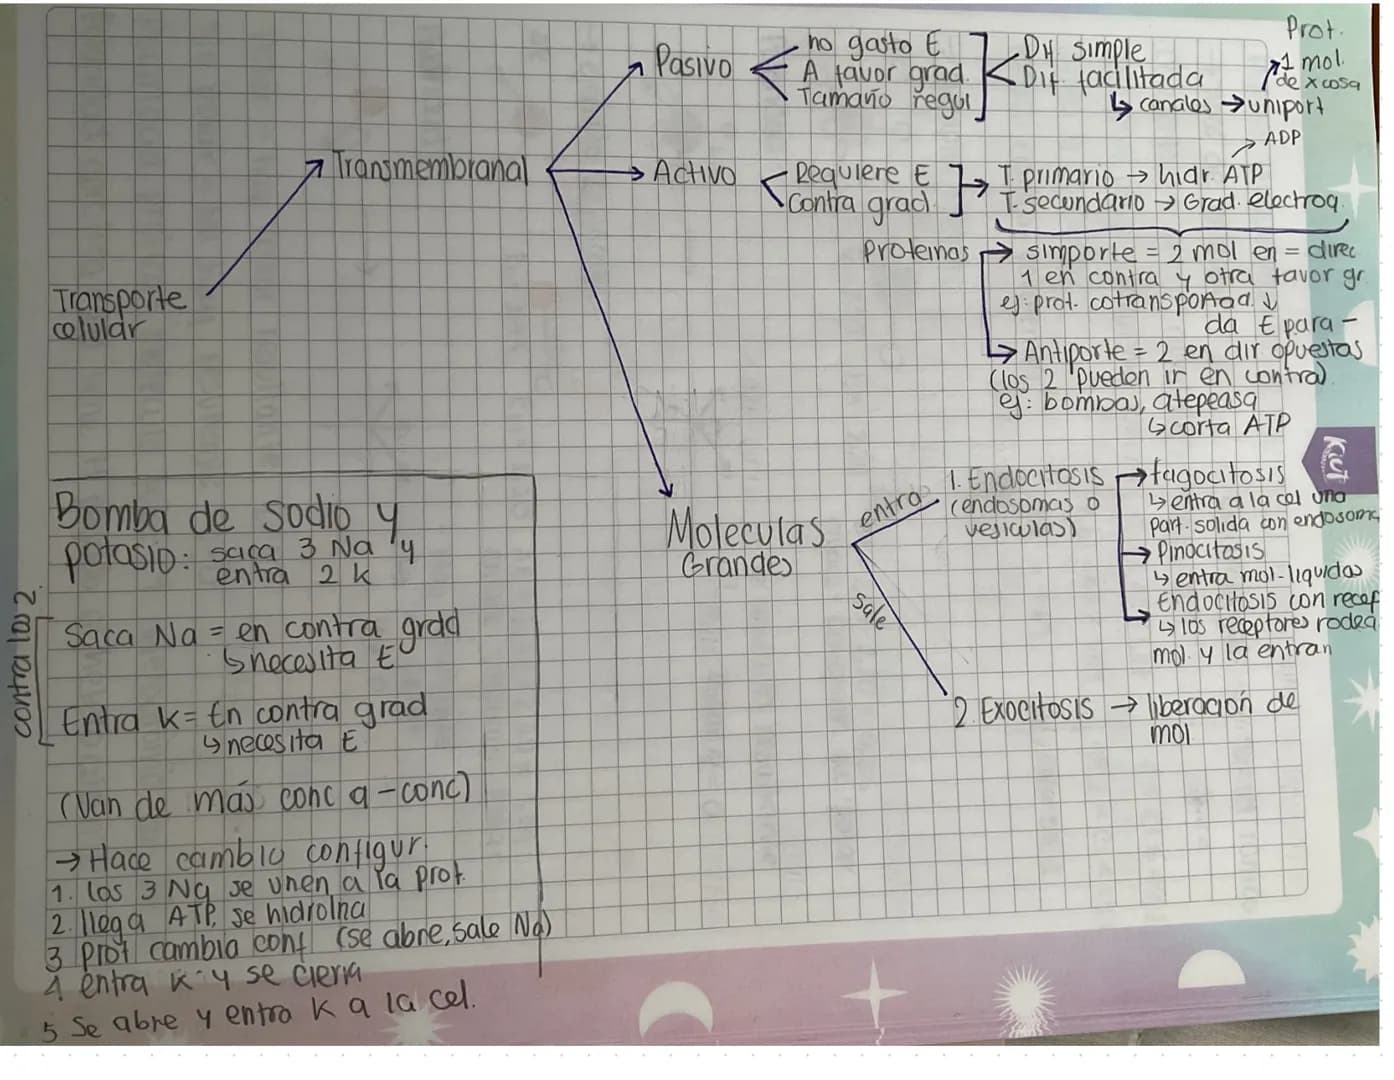 Transporte
celular
Transmembranal
Pasivo
no gasto E
A favor grad.
Tamaño regul
Dif simple
Dif facilitada
↳ canales → uniport
Prot.
1 mol.
de x cosa
Activo
Requiere E
Contra grad.
T. primario → hidr. ATP
ADP
T. secundario → Grad. electroq.
Proteinas → simporte = 2 mol en = direc
1 en contra y otra favor gr
ej: prot. cotransportad. ↓
da E para -
↳ Antiporte = 2 en dir opuestas
(los 2 pueden ir en contra).
ej: bombas, atepeasa
↳ corta ATP
Moleculas
Grandes
entra
1. Endocitosis
(endosomas o
vesiculas)
→ fagocitosis
↳ entra a la cel una
part. solida con endosoma
→ Pinocitosis
↳ entra mol. liquidas
Endocitosis con recep
↳ los receptores rodea
mol. y la entran
sale
2. Exocitosis → liberación de
mol
Kut
Bomba de sodio y
potasio: saca 3 Na y
entra 2 K
contra los 2.
Saca Na = en contra grad
↳ necesita E
Entra K = En contra grad
↳ necesita E
(Van de más conc a - conc)
→ Hace cambio configur.
1. los 3 Na se unen a la prot.
2. llega ATP, se hidroliza
3 prot cambia conf (se abre, sale Na)
4 entra K y se cierra
5 Se abre y entra K a la cel.